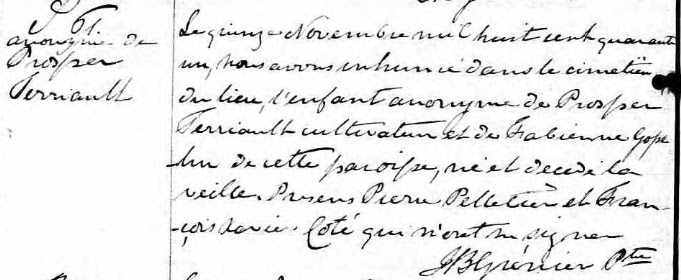 S 61
anonyme de
Prosper
Terriault
Le quinze Novembre mil huit cent quarante
un, nous avons inhumé dans le cimetière
du lieu, l'enfant anonyme de Prosper
Terriault cultivateur et de Fabienne Gosse
lin de cette paroisse, né et decedé la
veille. Presens Pierre Pelletier et Fran-
çois Xavier Coté qui n'ont su signer
JB Grénier Ptre